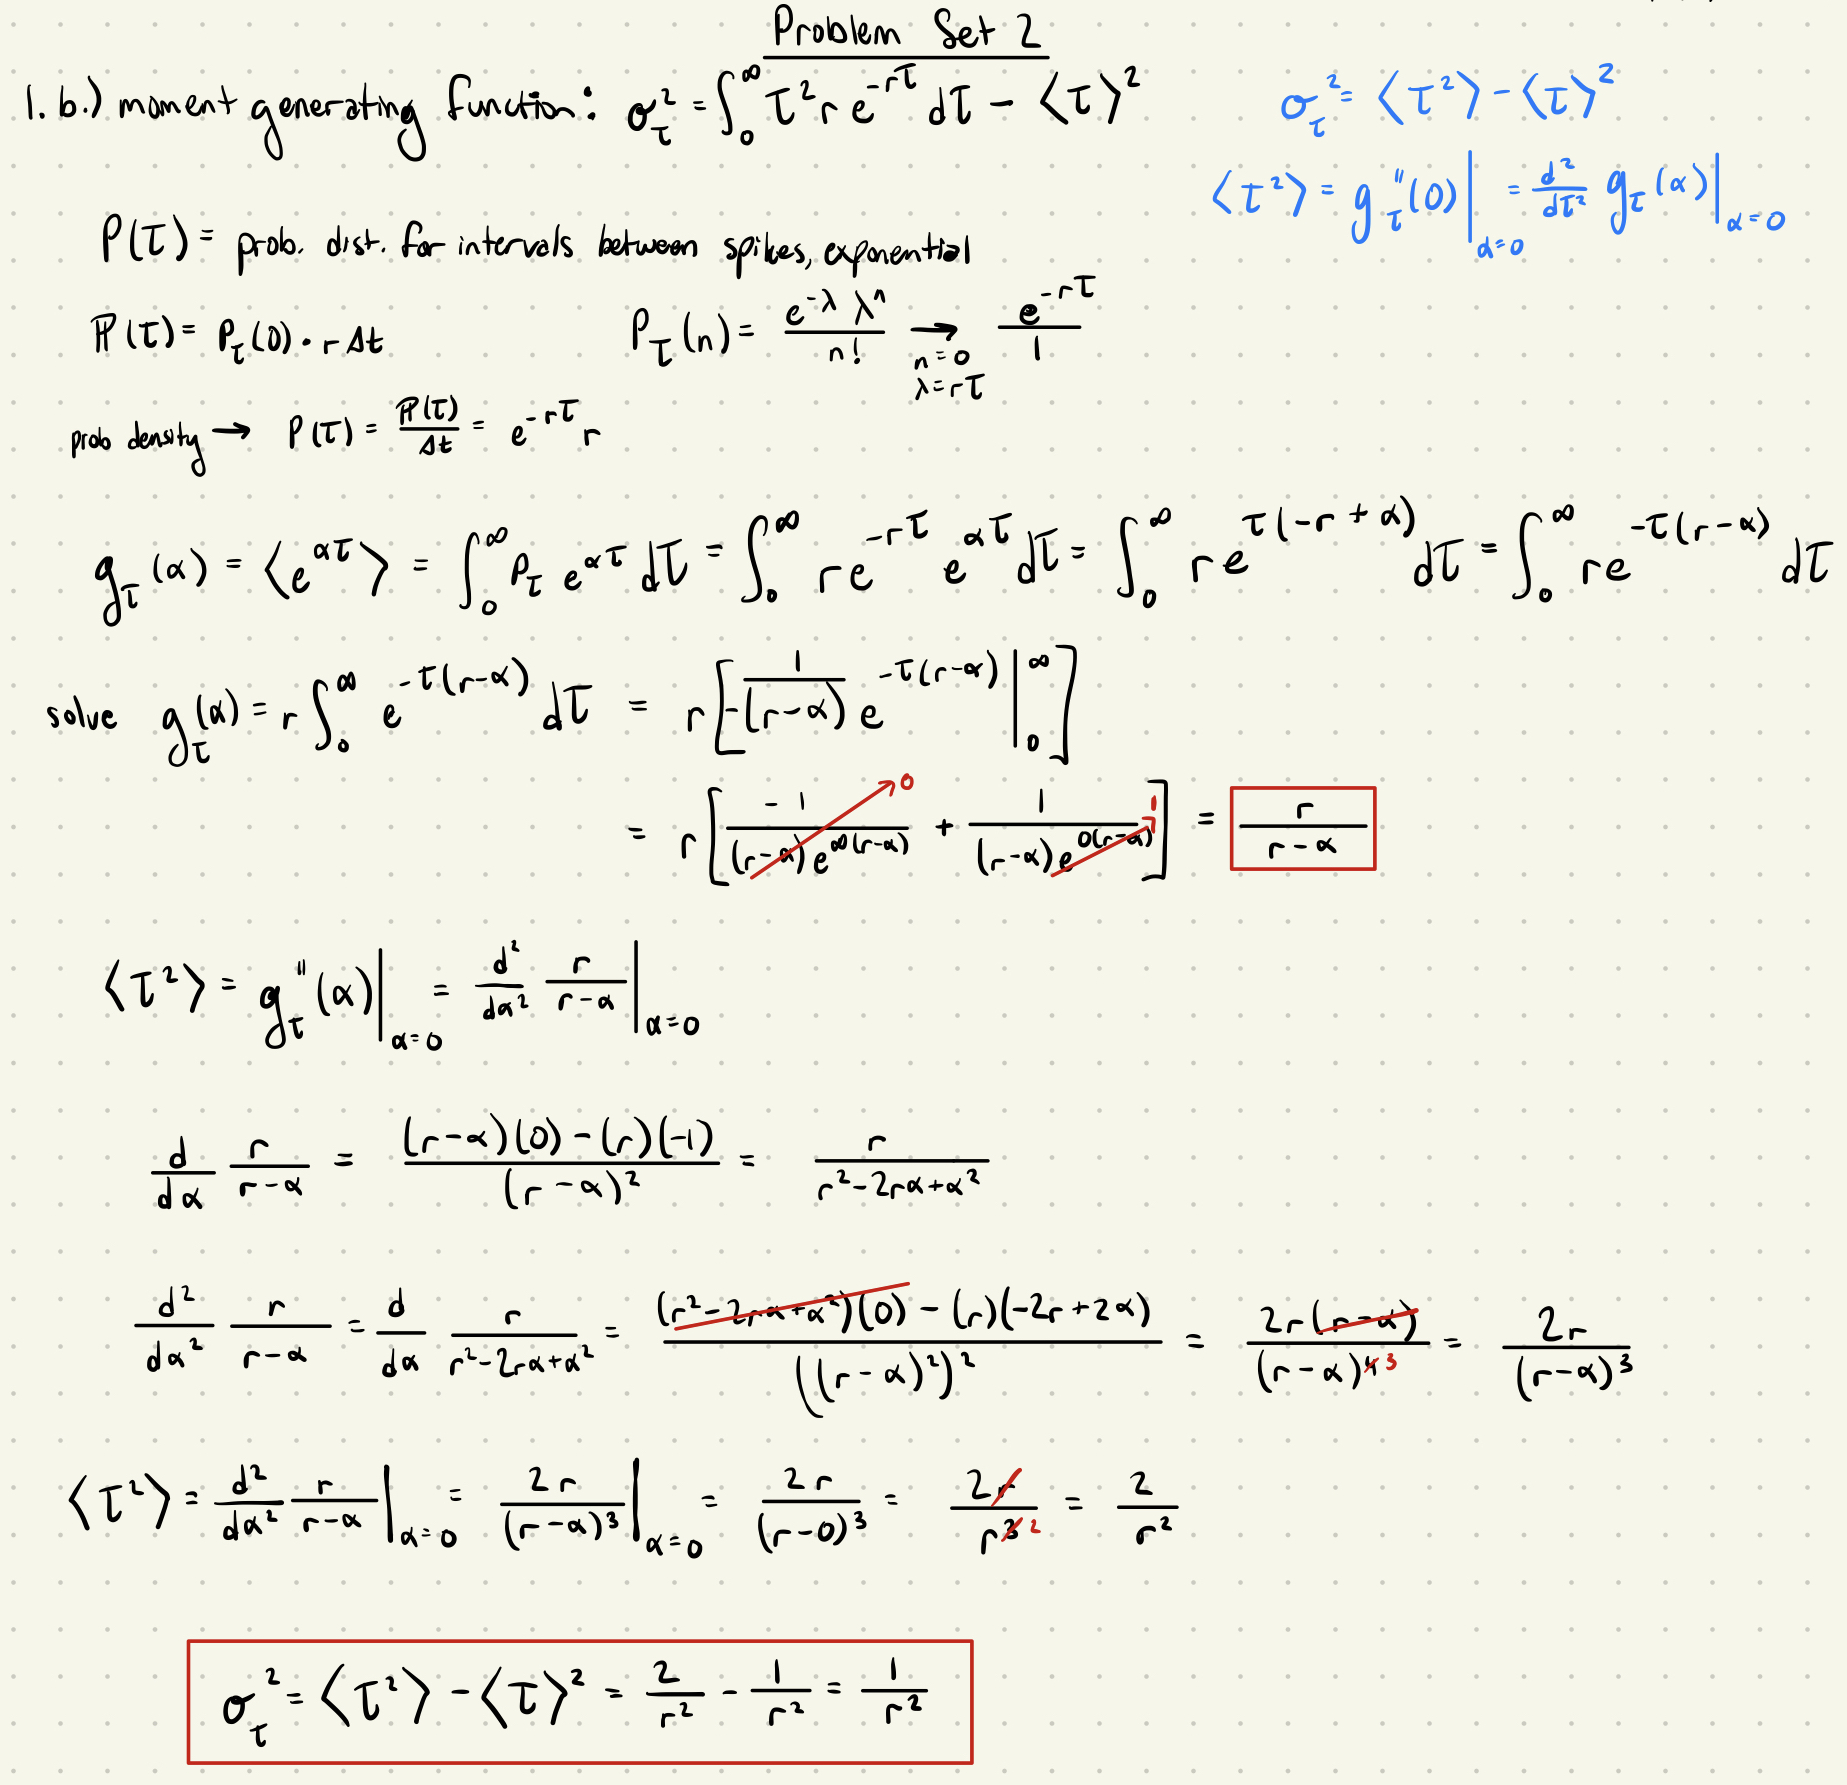 Problem Set 2
1. b.) moment generating function: σ_τ² = ∫₀^∞ τ² r e^{-rτ} dτ - ⟨τ⟩²
σ_τ² = ⟨τ²⟩ - ⟨τ⟩²
⟨τ²⟩ = g_τ''(0)|_{α=0} = d²/dτ² g_τ(α)|_{α=0}
P(τ) = prob. dist. for intervals between spikes, exponential
ℙ(τ) = P_τ(0) · r Δt
P_τ(n) = e^{-λ} λⁿ / n! → (n=0, λ=rτ) e^{-rτ} / 1
prob density → P(τ) = ℙ(τ)/Δt = e^{-rτ} r
g_τ(α) = ⟨e^{ατ}⟩ = ∫₀^∞ P_τ e^{ατ} dτ = ∫₀^∞ r e^{-rτ} e^{ατ} dτ = ∫₀^∞ r e^{τ(-r+α)} dτ = ∫₀^∞ r e^{-τ(r-α)} dτ
solve g_τ(α) = r ∫₀^∞ e^{-τ(r-α)} dτ = r [ 1/-(r-α) e^{-τ(r-α)} |₀^∞ ]
= r [ -1/((r-α) e^{∞(r-α)}) → 0 + 1/((r-α) e^{0(r-α)} → 1) ] = r/(r-α)
⟨τ²⟩ = g_τ''(α)|_{α=0} = d²/dα² r/(r-α) |_{α=0}
d/dα r/(r-α) = ((r-α)(0) - (r)(-1))/(r-α)² = r/(r²-2rα+α²)
d²/dα² r/(r-α) = d/dα r/(r²-2rα+α²) = ((r²-2rα+α²)(0) - (r)(-2r+2α))/((r-α)²)² = 2r(r-α)/(r-α)^4 3 = 2r/(r-α)³
⟨τ²⟩ = d²/dα² r/(r-α) |_{α=0} = 2r/(r-α)³ |_{α=0} = 2r/(r-0)³ = 2r/r^3 2 = 2/r²
σ_τ² = ⟨τ²⟩ - ⟨τ⟩² = 2/r² - 1/r² = 1/r²